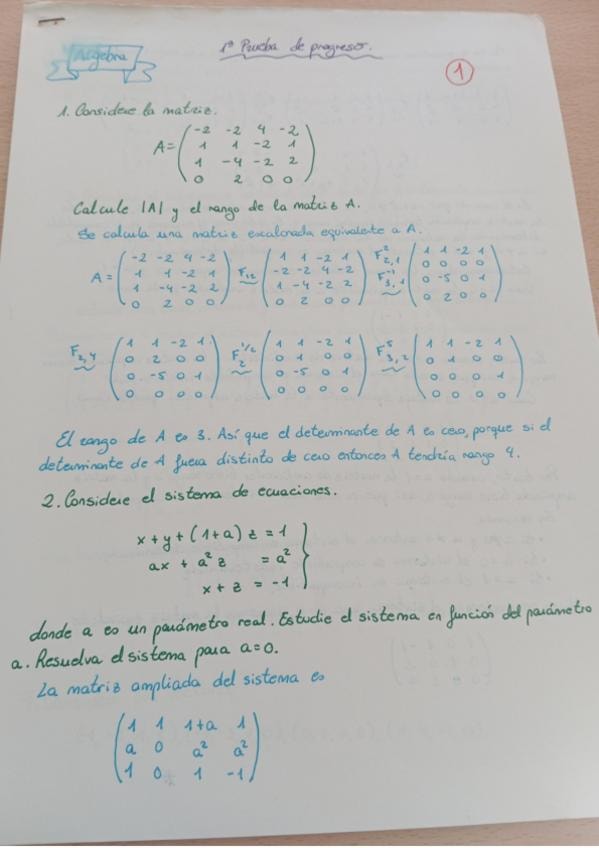 Álgebra
1ª Prueba de progreso.
1
1. Considere la matriz.
A = ( -2 -2 4 -2
1 1 -2 1
1 -4 -2 2
0 2 0 0 )
Calcule |A| y el rango de la matriz A.
Se calcula una matriz escalonada equivalente a A.
A = ( -2 -2 4 -2
1 1 -2 1
1 -4 -2 2
0 2 0 0 )
F₁₂
( 1 1 -2 1
-2 -2 4 -2
1 -4 -2 2
0 2 0 0 )
F²₂,₁
F⁻¹₃,₁
( 1 1 -2 1
0 0 0 0
0 -5 0 1
0 2 0 0 )
F₂,₄
( 1 1 -2 1
0 2 0 0
0 -5 0 1
0 0 0 0 )
F₂^1/2
( 1 1 -2 1
0 1 0 0
0 -5 0 1
0 0 0 0 )
F⁵₃,₂
( 1 1 -2 1
0 1 0 0
0 0 0 1
0 0 0 0 )
El rango de A es 3. Así que el determinante de A es cero, porque si el
determinante de A fuera distinto de cero entonces A tendría rango 4.
2. Considere el sistema de ecuaciones.
x + y + (1+a) z = 1
ax + a² z = a²
x + z = -1
donde a es un parámetro real. Estudie el sistema en función del parámetro
a. Resuelva el sistema para a=0.
La matriz ampliada del sistema es
( 1 1 1+a 1
a 0 a² a²
1 0 1 -1 )